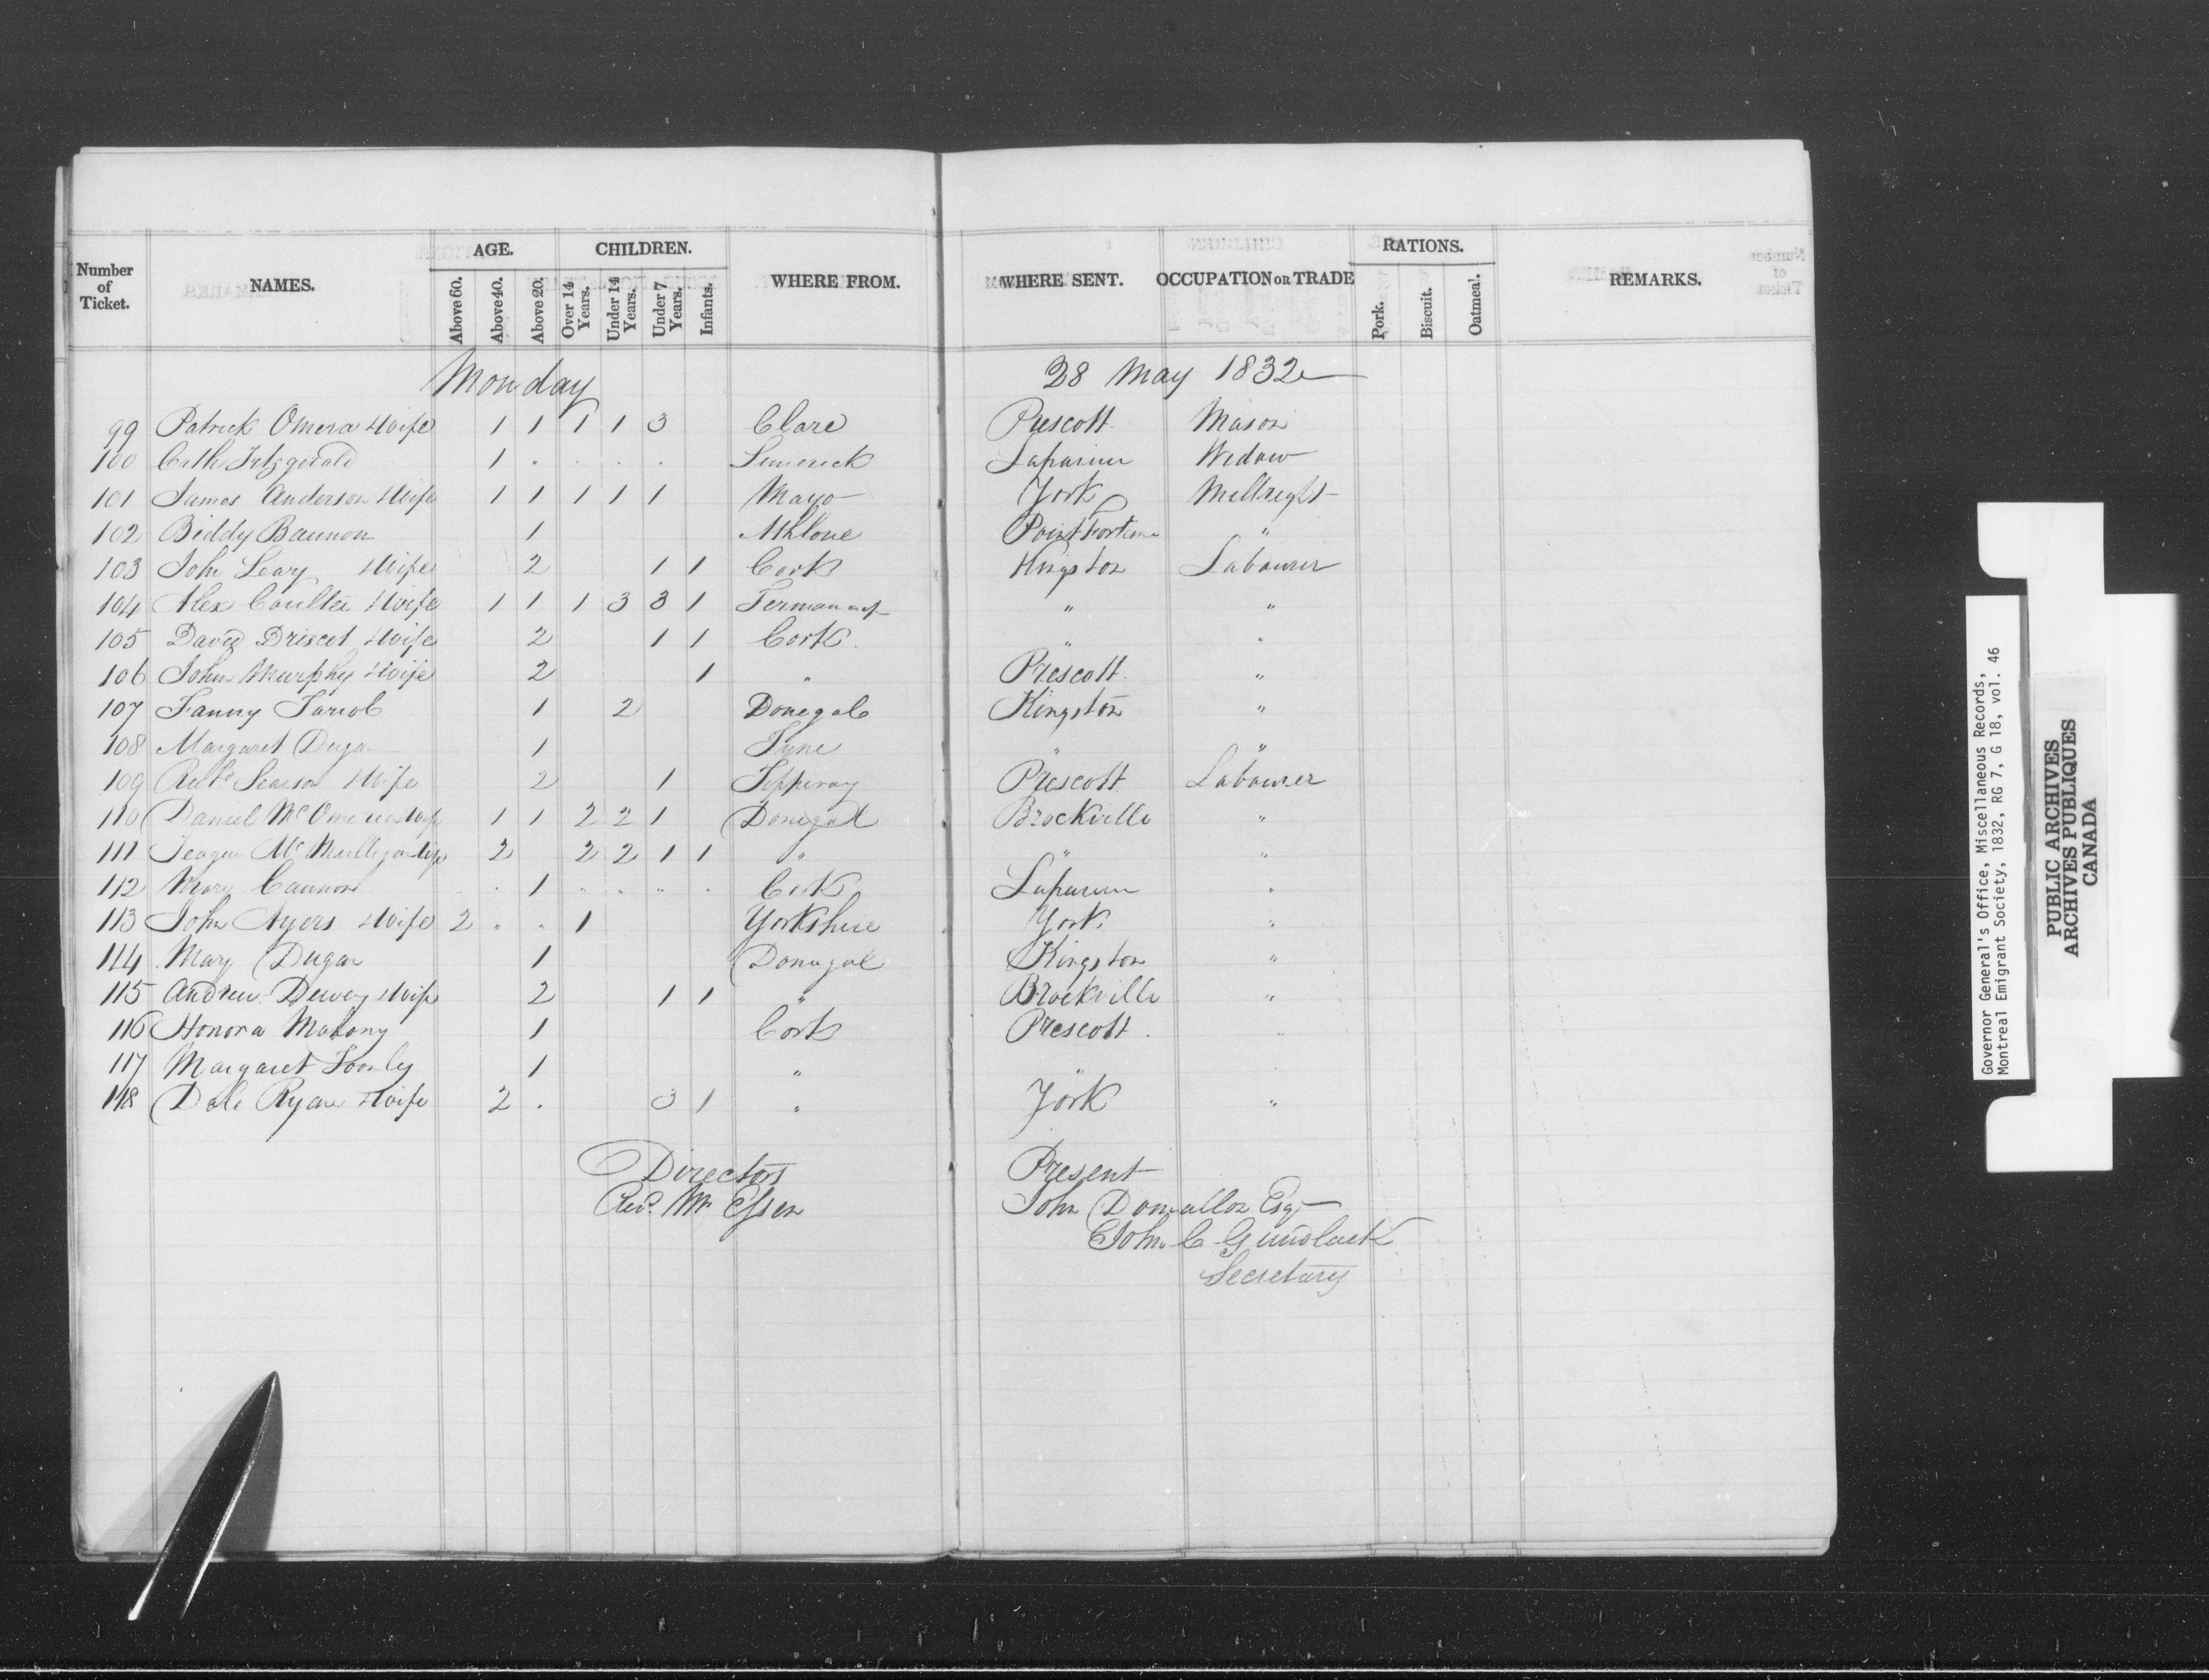 Number of Ticket. NAMES. AGE. Above 60. Above 40. Above 20. CHILDREN. Over 14 Years. Under 14 Years. Under 7 Years. Infants. WHERE FROM. WHERE SENT. OCCUPATION OR TRADE RATIONS. Pork. Biscuit. Oatmeal. REMARKS.
Monday 28 May 1832
99 Patrick Omera & Wife 1 1 1 1 3 Clare Prescott Mason
100 Cath Fitzgerald 1 . . . . Limerick Widow
101 James Anderson & Wife 1 1 1 1 1 Mayo York
102 Biddy Bannon 1 Athlone Point Fortune "
103 John Leary Wife 2 1 1 Cork Kingston Labourer
104 Alex Coulter & Wife 1 1 1 3 3 1 " "
105 David Driscol & Wife 2 1 1 Cork " "
106 John Murphy & Wife 2 1 " Prescott "
107 Fanny 1 2 Donegal Kingston "
108 Margaret Dugan 1 " "
109 Wife 2 1 Prescott Labourer
110 Daniel 1 1 2 2 1 Donegal Brockville "
111 2 2 2 1 1 " " "
112 Mary Cannon . . 1 " " " . Cork "
113 John Ayers & Wife 2 . . 1 Yorkshire York "
114 Mary Dugan 1 Donegal Kingston "
115 Andrew Wife 2 1 1 " Brockville "
116 Honora Mahony 1 Cork Prescott "
117 Margaret 1 " "
118 Ryan & Wife 2 . 3 1 " York "
Directors Present
Revd. Mr Esson John Esqr
John C Gundlack
Secretary
Governor General's Office, Miscellaneous Records,
Montreal Emigrant Society, 1832, RG 7, G 18, vol. 46
PUBLIC ARCHIVES
ARCHIVES PUBLIQUES
CANADA